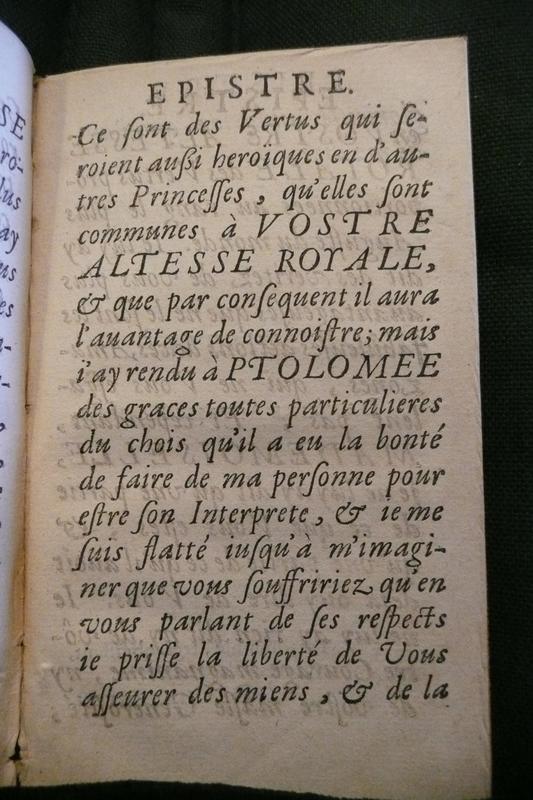 SE
ro-
lus
ay
us
es
EPISTRE.
Ce ſont des Vertus qui ſe-
roient auſſi heroïques en d'au-
tres Princeſſes, qu'elles ſont
communes à VOSTRE
ALTESSE ROYALE,
& que par conſequent il aura
l'auantage de connoiſtre; mais
i'ay rendu à PTOLOMEE
des graces toutes particulieres
du chois qu'il a eu la bonté
de faire de ma perſonne pour
eſtre ſon Interprete, & ie me
ſuis flatté iuſqu'à m'imagi-
ner que vous ſouffririez qu'en
vous parlant de ſes reſpects
ie priſſe la liberté de Vous
aſſeurer des miens, & de la